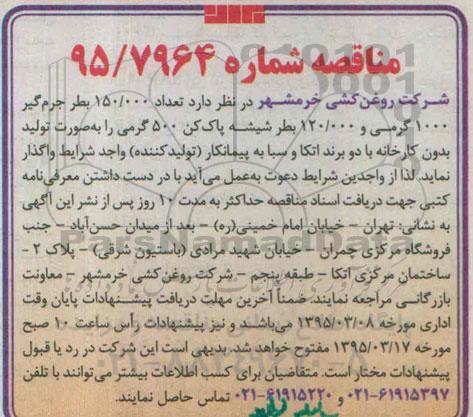 مناقصه شماره ۹۵/۷۹۶۴
شرکت روغن‌کشی خرمشهر در نظر دارد تعداد ۱۵۰/۰۰۰ بطر جرم‌گیر
۱۰۰۰ گرمی و ۱۲۰/۰۰۰ بطر شیشه پاک‌کن ۵۰۰ گرمی را به‌صورت تولید
بدون کارخانه با دو برند اتکا و سبا به پیمانکار (تولیدکننده) واجد شرایط واگذار
نماید. لذا از واجدین شرایط دعوت به‌عمل می‌آید با در دست داشتن معرفی‌نامه
کتبی جهت دریافت اسناد مناقصه حداکثر به مدت ۱۰ روز پس از نشر این آگهی
به نشانی: تهران – خیابان امام خمینی(ره) – بعد از میدان حسن‌آباد – جنب
فروشگاه مرکزی چمران – خیابان شهید مرادی (باستیون شرقی) – پلاک ۲ –
ساختمان مرکزی اتکا – طبقه پنجم – شرکت روغن‌کشی خرمشهر – معاونت
بازرگانی مراجعه نمایند. ضمناً آخرین مهلت دریافت پیشنهادات پایان وقت
اداری مورخه ۱۳۹۵/۰۳/۰۸ می‌باشد و نیز پیشنهادات رأس ساعت ۱۰ صبح
مورخه ۱۳۹۵/۰۳/۱۷ مفتوح خواهد شد. بدیهی است این شرکت در رد یا قبول
پیشنهادات مختار است. متقاضیان برای کسب اطلاعات بیشتر می‌توانند با تلفن
۰۲۱-۶۱۹۱۵۳۹۷ و ۰۲۱-۶۱۹۱۵۲۲۰ تماس حاصل نمایند.
ParsNamadData